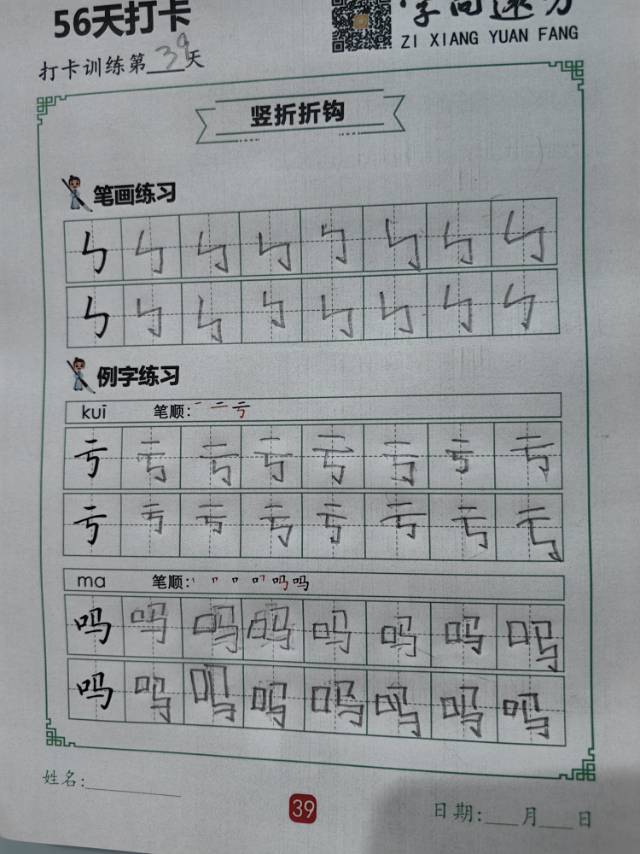 56天打卡
字向速方
ZI XIANG YUAN FANG
打卡训练第39天
竖折折钩
笔画练习
㇉ ㇉ ㇉ ㇉ ㇉ ㇉ ㇉ ㇉
㇉ ㇉ ㇉ ㇉ ㇉ ㇉ ㇉ ㇉
例字练习
kuī 笔顺: 一 二 亏
亏 亏 亏 亏 亏 亏 亏 亏
亏 亏 亏 亏 亏 亏 亏 亏
ma 笔顺: 吗 吗
吗 吗 吗 吗 吗 吗 吗 吗
吗 吗 吗 吗 吗 吗 吗 吗
姓名:
39
日期: 月 日